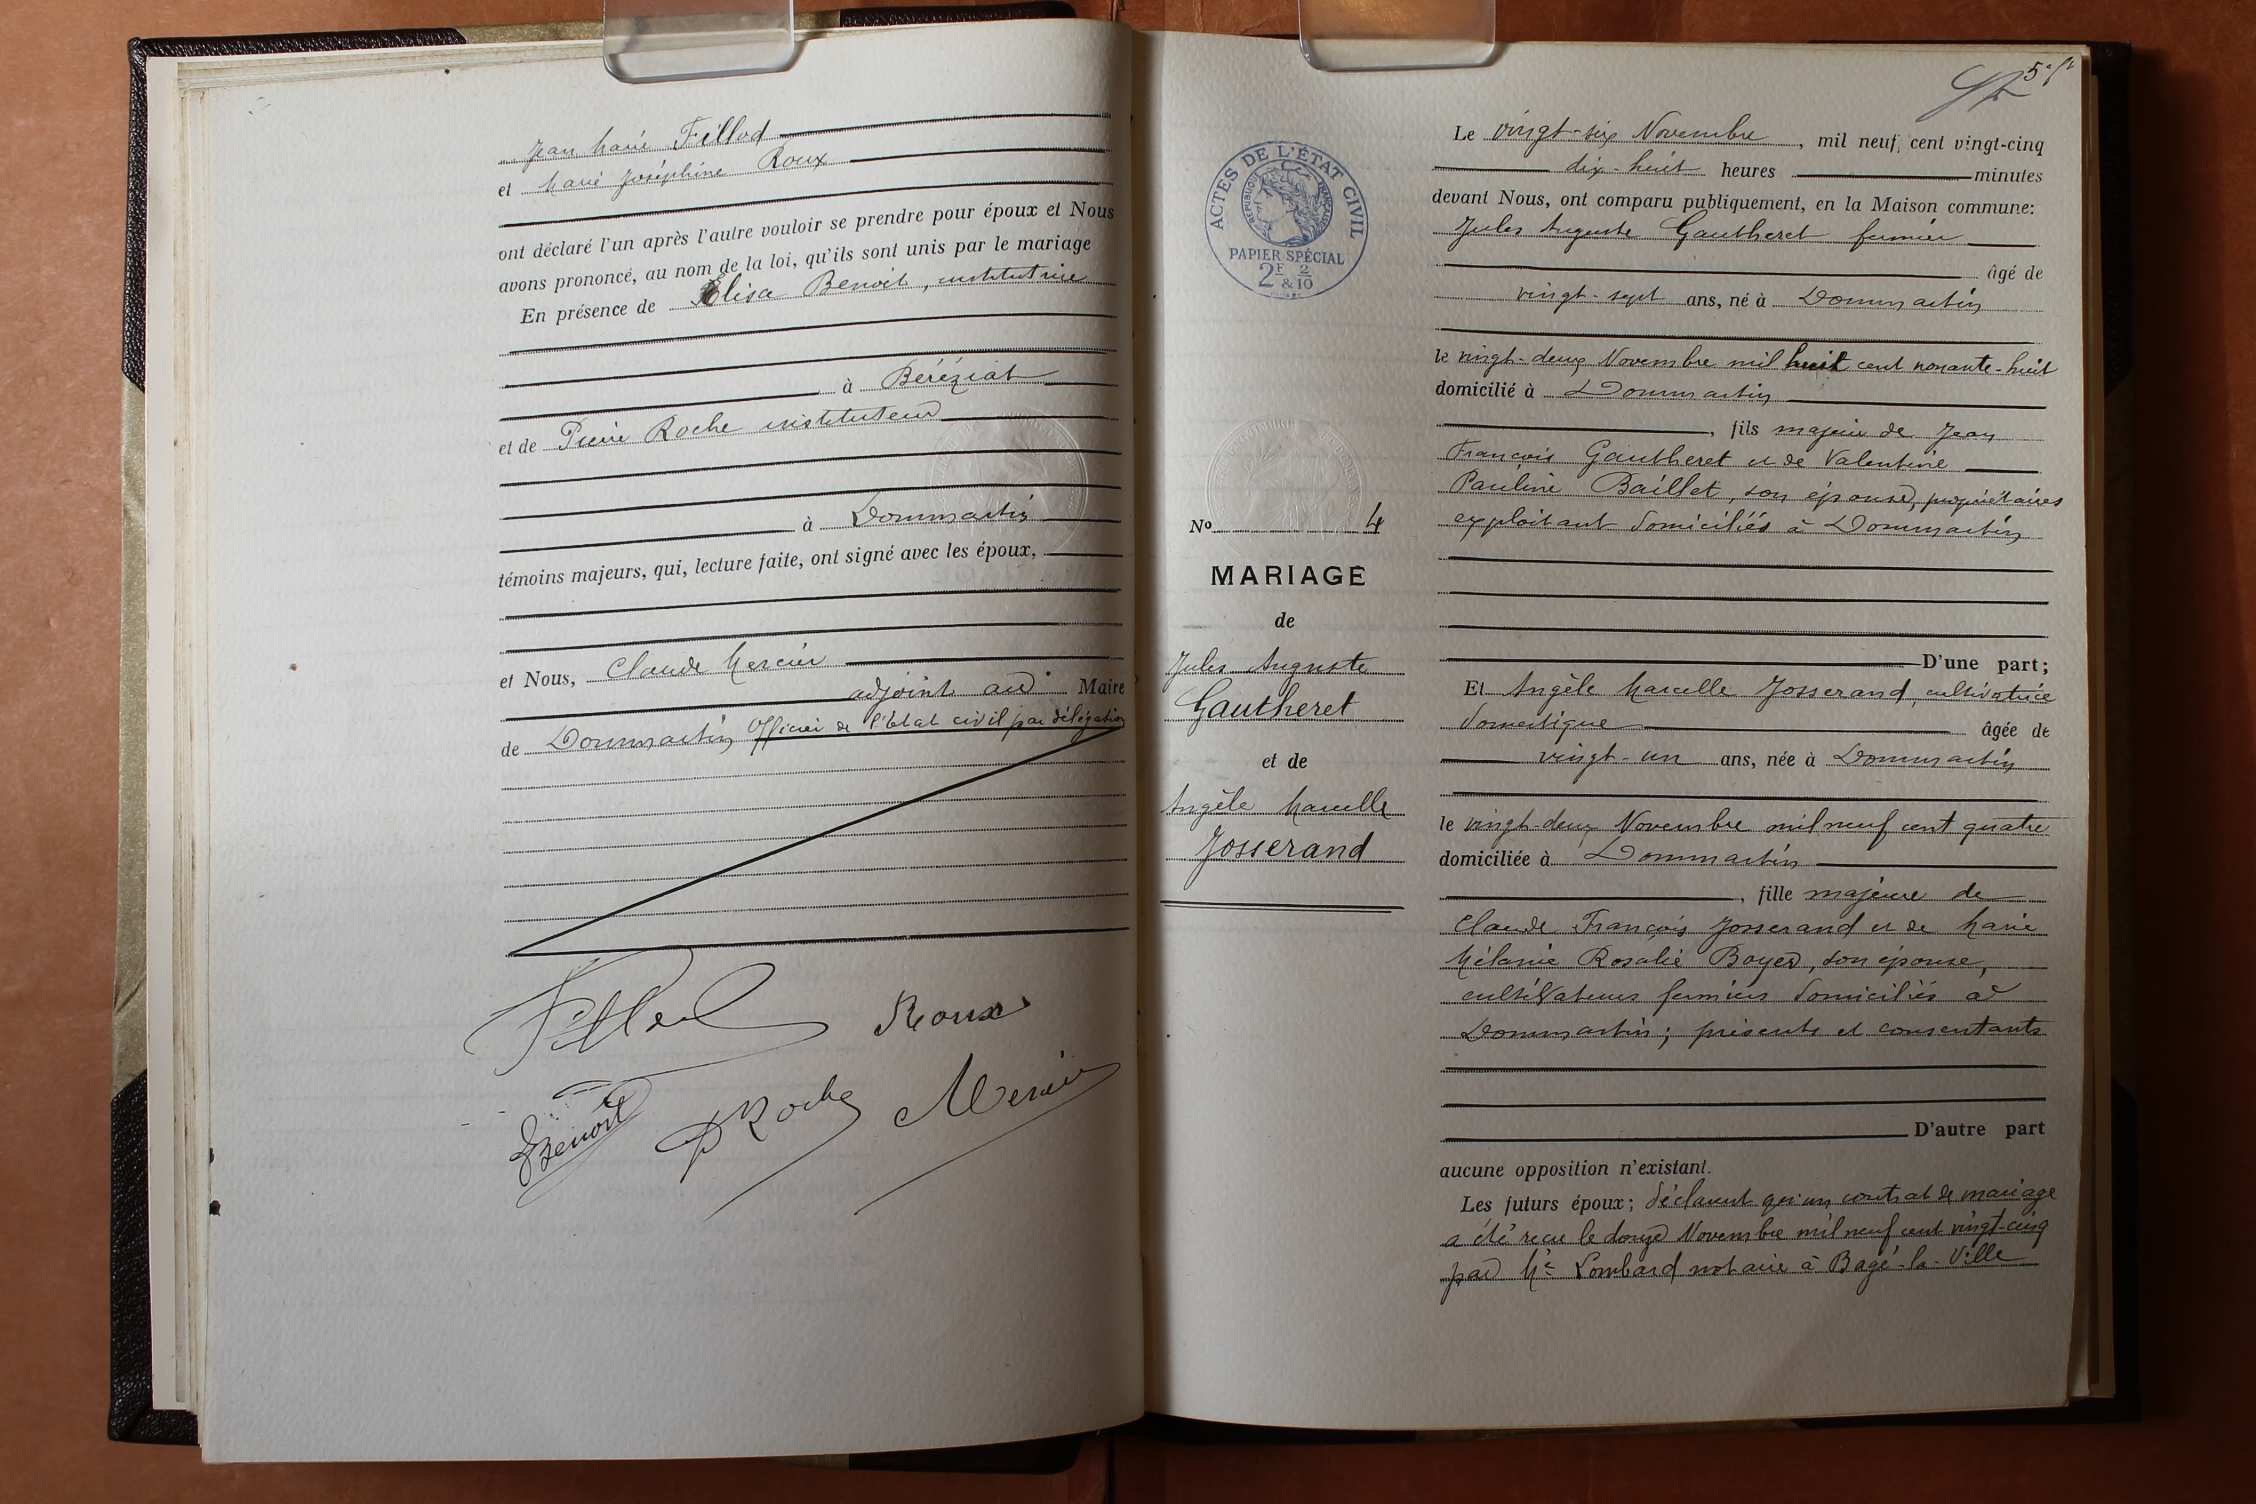 Jean Marie Fillod
et Marie Joséphine Roux
ont déclaré l'un après l'autre vouloir se prendre pour époux et Nous
avons prononcé, au nom de la loi, qu'ils sont unis par le mariage
En présence de Elisa Benoit, institutrice
à Béréziat
et de Pierre Roche instituteur
à Dommartin
témoins majeurs, qui, lecture faite, ont signé avec les époux,
et Nous, Claude Mercier
adjoint au Maire
de Dommartin Officier de l'Etat civil par délégation
Fillod Roux
EBenoit PRoche Mercier
5
ACTES DE L'ÉTAT CIVIL
RÉPUBLIQUE FRANÇAISE
PAPIER SPÉCIAL
2F 2
& 10
No 4
MARIAGE
de
Jules Auguste
Gautheret
et de
Angèle Marcelle
Josserand
Le vingt-six Novembre, mil neuf cent vingt-cinq
dix-huit heures minutes
devant Nous, ont comparu publiquement, en la Maison commune:
Jules Auguste Gautheret fermier
âgé de
vingt-sept ans, né à Dommartin
le vingt-deux Novembre mil huit cent nonante-huit
domicilié à Dommartin
, fils majeur de Jean
François Gautheret et de Valentine
Pauline Baillet, son épouse, propriétaires
exploitant domiciliés à Dommartin
D'une part;
Et Angèle Marcelle Josserand, cultivatrice
domestique âgée de
vingt-un ans, née à Dommartin
le vingt-deux Novembre mil neuf cent quatre
domiciliée à Dommartin
, fille majeure de
Claude François Josserand et de Marie
Mélanie Rosalie Boyer, son épouse,
cultivateurs fermiers domiciliés à
Dommartin; présents et consentants
D'autre part
aucune opposition n'existant.
Les futurs époux; déclarent qu'un contrat de mariage
a été reçu le douze Novembre mil neuf cent vingt-cinq
par Me Lombard notaire à Bagé-la-Ville